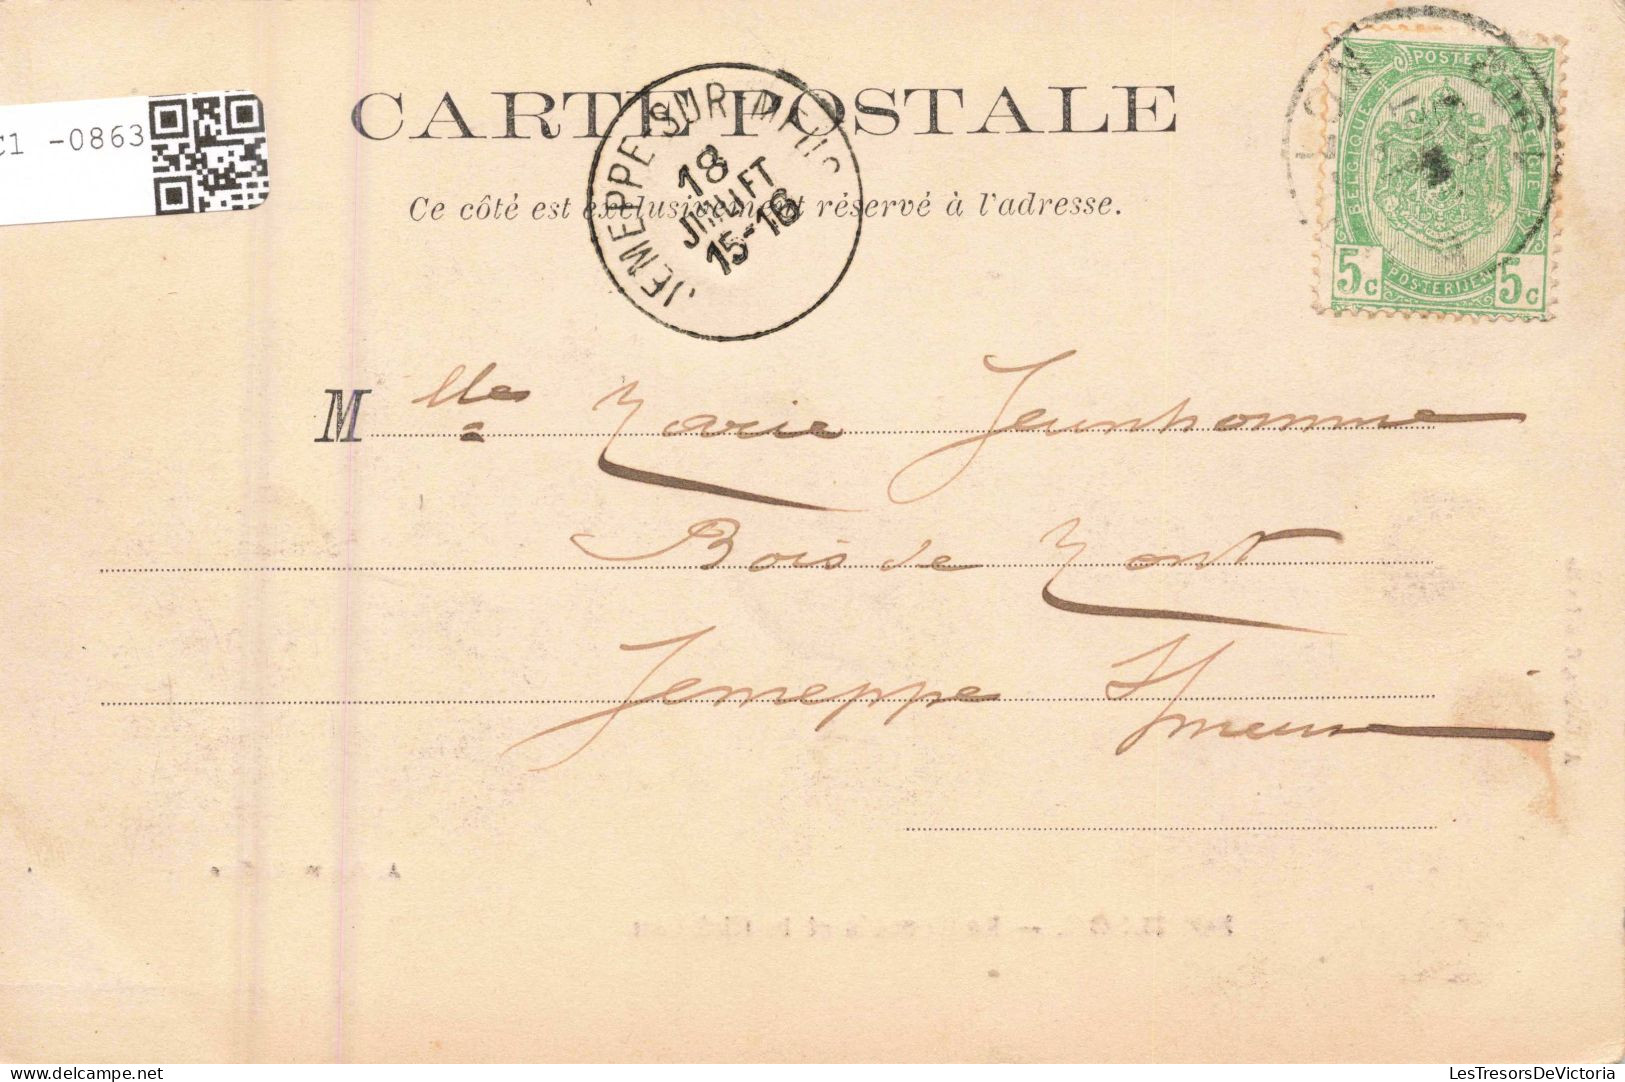 C1 -0863
CARTE POSTALE
Ce côté est exclusivement réservé à l'adresse.
JEMEPPE-SUR-MEUSE
18
JUILLET
15-16
POSTES
BELGIQUE
BELGIE
POSTERIJEN
5c 5c
Mlles Marie Jeunhomme
Bois de Mont
Jemeppe s/meuse
LesTresorsDeVictoria
© DELCAMPE